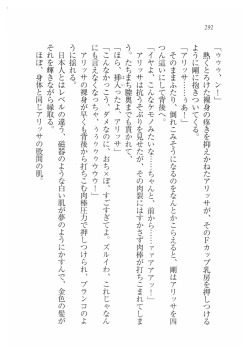 292
「ゥゥゥ、ン!」
熱くとろけた裸身の疼きを抑えかねたアリッサが、そのFカップ乳房を押しつける
ように剛に抱きついてくる。
「アリッサ!」
「剛っ、あ!」
そのままふたり、倒れこみそうになるのをなんとかこらえると、剛はアリッサを四
つん這いにして背後へ。
「イヤよ、こんなケモノみたいな……ちゃんと、前から……ァァアアアッ!」
アリッサは抗うそぶりを見せたが、その肉裂にはすかさず肉棒が打ちこまれてしま
う。たちまち膣奥までも貫かれて、
「ほら、挿入ったよ、アリッサ」
「こんなかっこう、ダメなのに、おち×ぽ、すごすぎてよ、ズルイわ、これじゃなん
にも言えなくなっちゃ、ぅぅゥゥウウウウ!」
アリッサの裸身が早くも背後から打ちこむ肉棒圧力で押しつけられ、ブランコのよ
うに揺れる。
日本人とはレベルの違う、磁器のような白い肌が夢のようにかすんで、金色の髪が
それを輝きながら縁取る。
ほぼ、身体と同じアリッサの股間の肌。